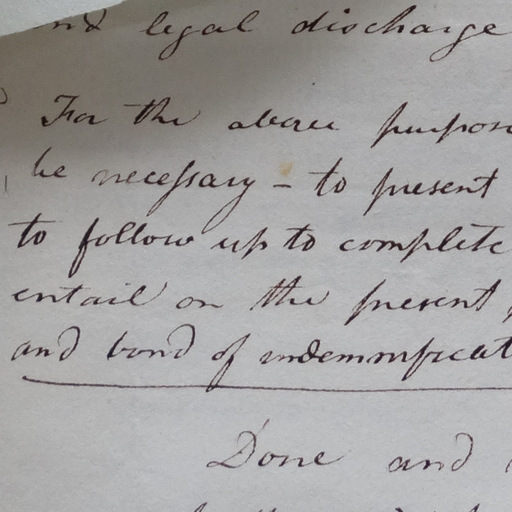 nd legal discharge
For the above purpos
be necessary - to present
to follow up to complete
entail on the present
and bond of indemnificat
Done and